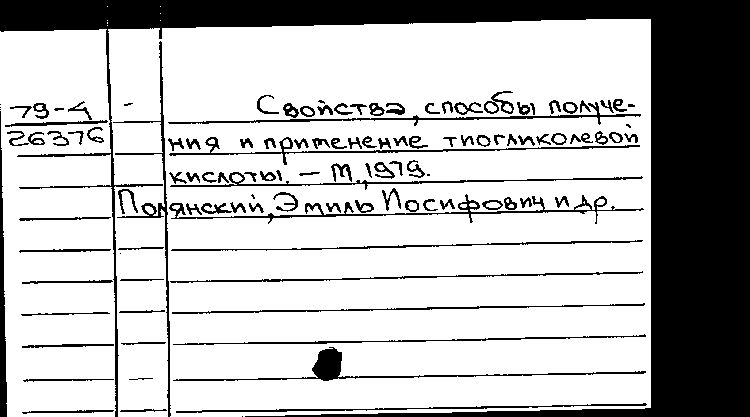 79-4 - Свойства, способы получе-
26376 ния и применение тиогликолевой
кислоты. – М., 1979.
Полянский, Эмиль Иосифович и др.